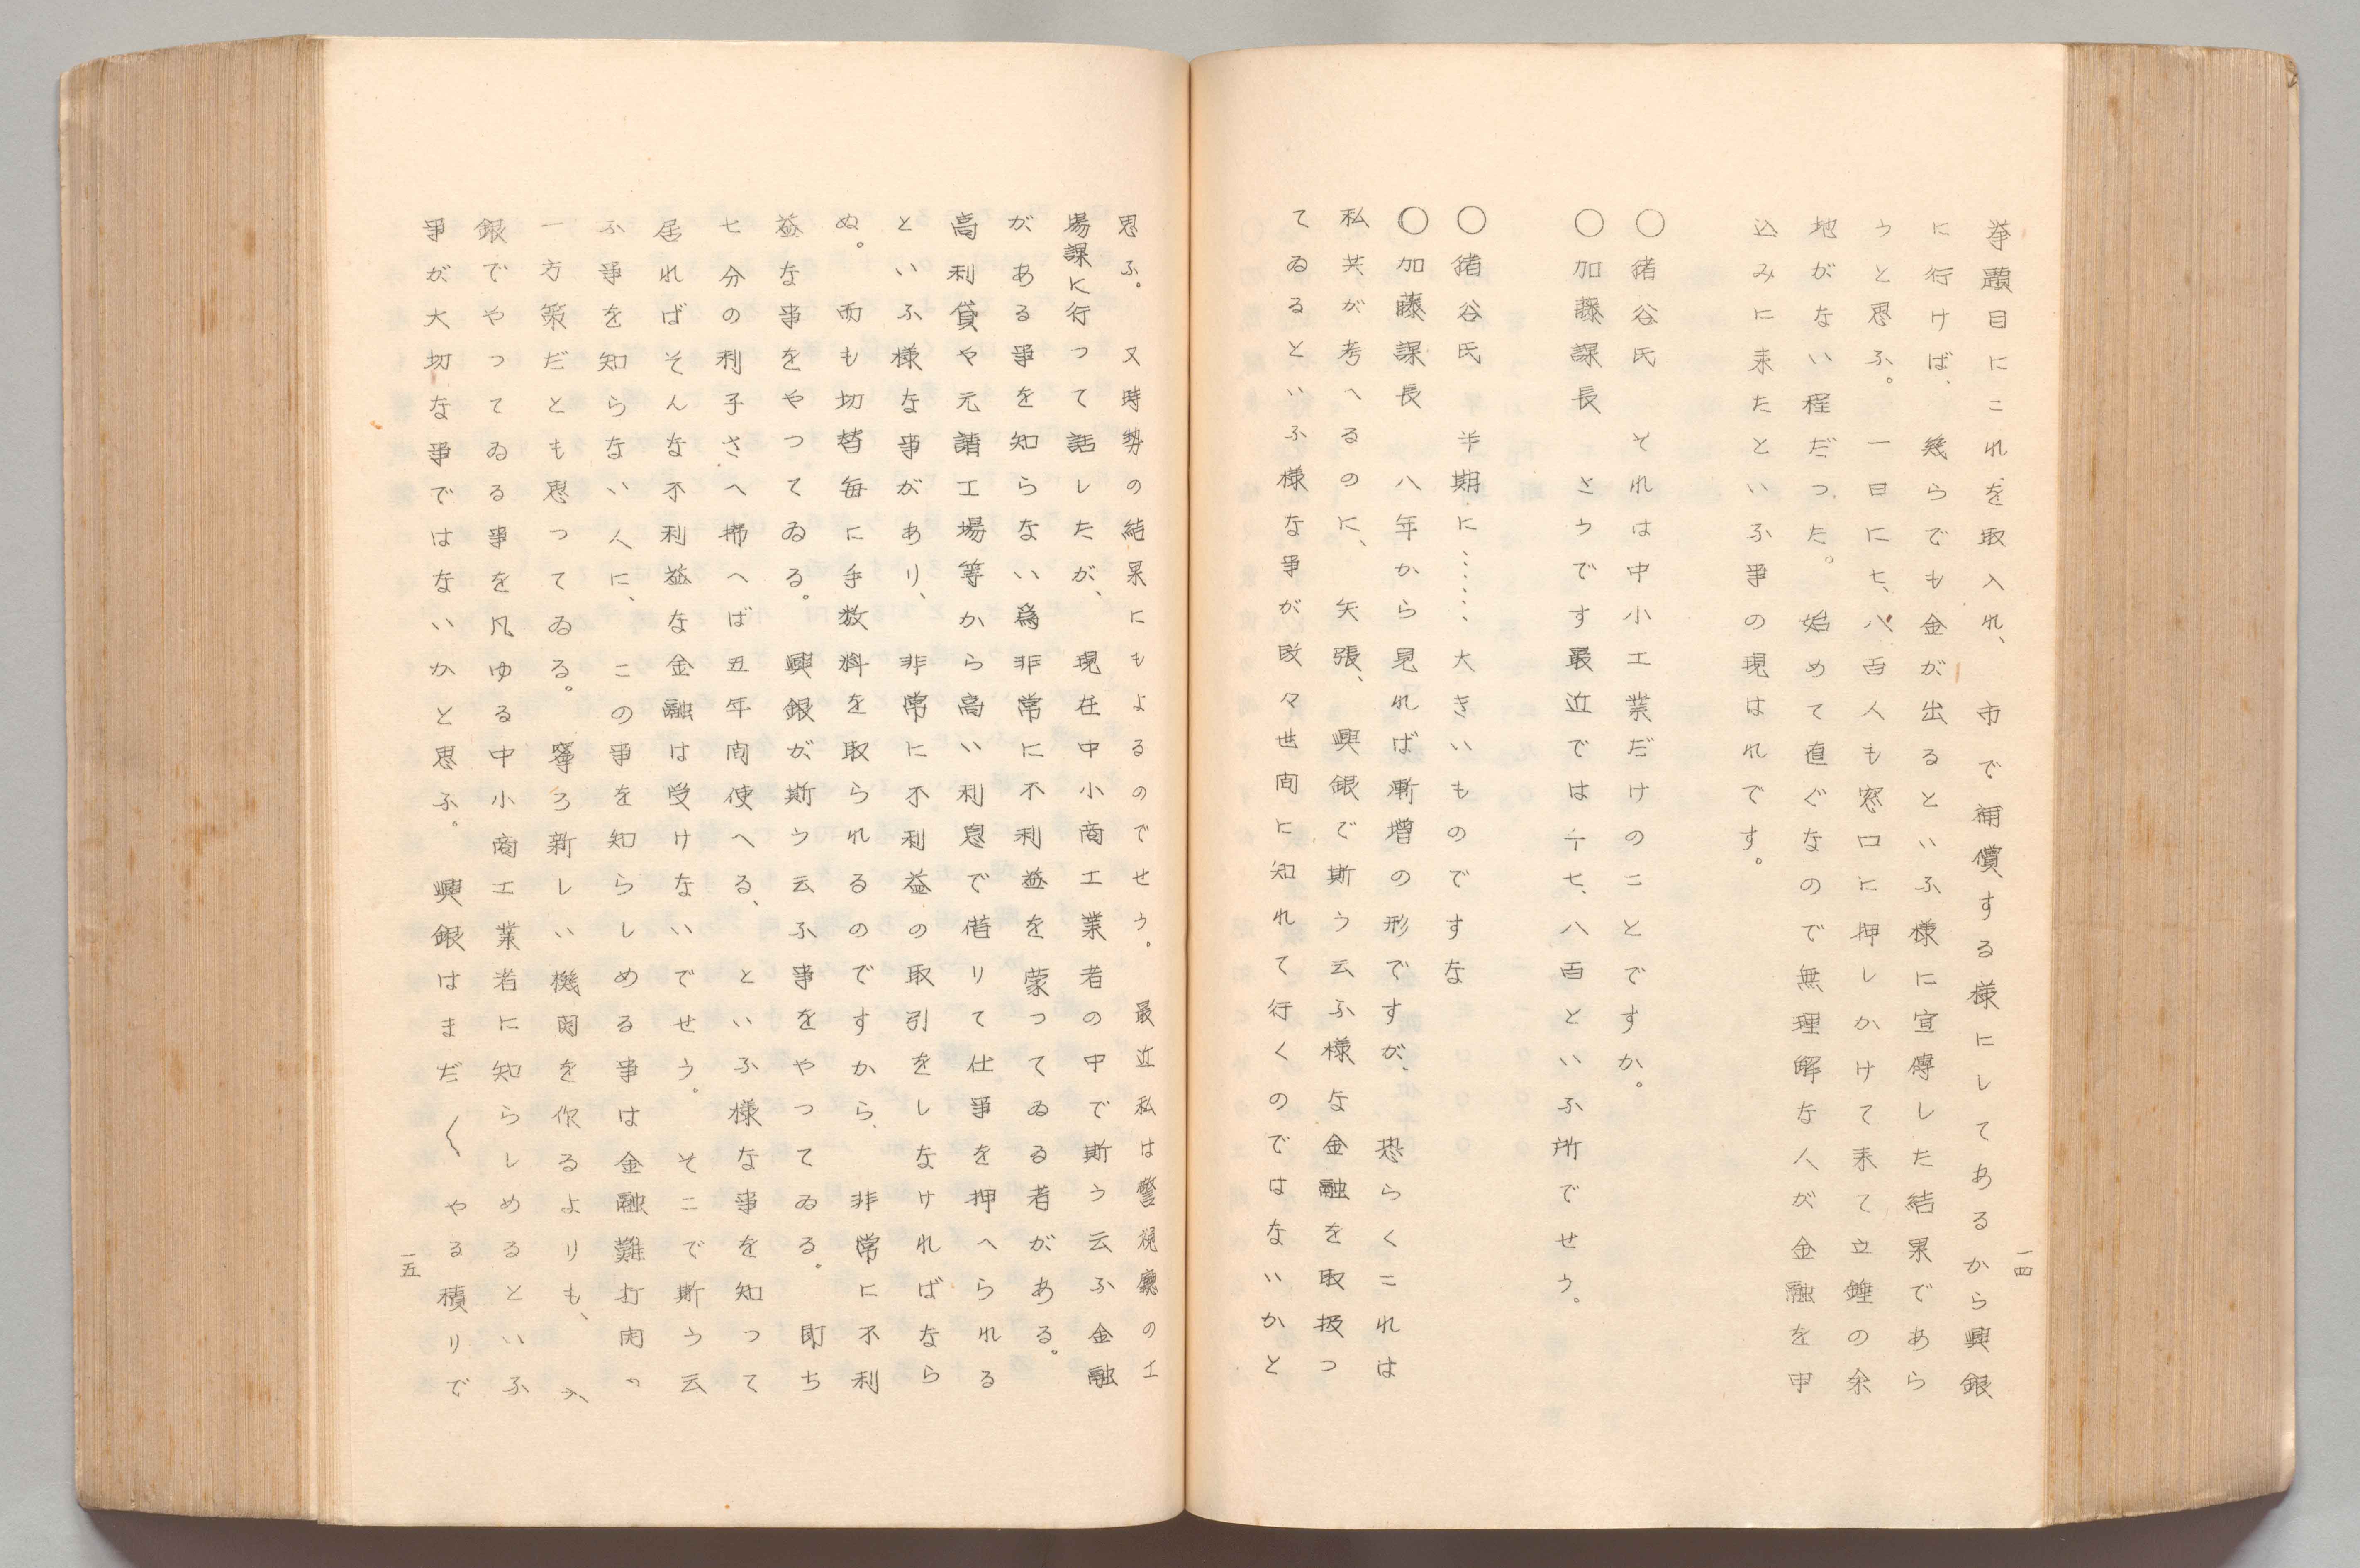 一四
挙題目にこれを取入れ、市で補償する様にしてあるから興銀
に行けば、幾らでも金が出るといふ様に宣傳した結果であら
うと思ふ。一日に七、八百人も窓口に押しかけて来て立錐の余
地がない程だつた。始めて直ぐなので無理解な人が金融を申
込みに来たといふ事の現はれです。
〇猪谷氏　それは中小工業だけのことですか。
〇加藤課長　さうです最近では千七、八百といふ所でせう。
〇猪谷氏　半期に……大きいものですな
〇加藤課長　八年から見れば漸増の形ですが、恐らくこれは
私共が考へるのに、矢張、興銀で斯う云ふ様な金融を取扱つ
てゐるといふ様な事が段々世間に知れて行くのではないかと
思ふ。又時勢の結果にもよるのでせう。最近私は警視廳の工
場課に行つて話したが、現在中小商工業者の中で斯う云ふ金融
がある事を知らない爲非常に不利益を蒙つてゐる者がある。
高利貸や元請工場等から高い利息で借りて仕事を押へられる
といふ様な事があり、非常に不利益の取引をしなければなら
ぬ。而も切替毎に手数料を取られるのですから、非常に不利
益な事をやつてゐる。興銀が斯う云ふ事をやつてゐる。即ち
七分の利子さへ拂へば五年間使へる、といふ様な事を知つて
居ればそんな不利益な金融は受けないでせう。そこで斯う云
ふ事を知らない人に、この事を知らしめる事は金融難打開の
一方策だとも思つてゐる。寧ろ新しい機関を作るよりも、今
銀でやつてゐる事を凡ゆる中小商工業者に知らしめるといふ
事が大切な事ではないかと思ふ。興銀はまだ〱やる積りで
一五